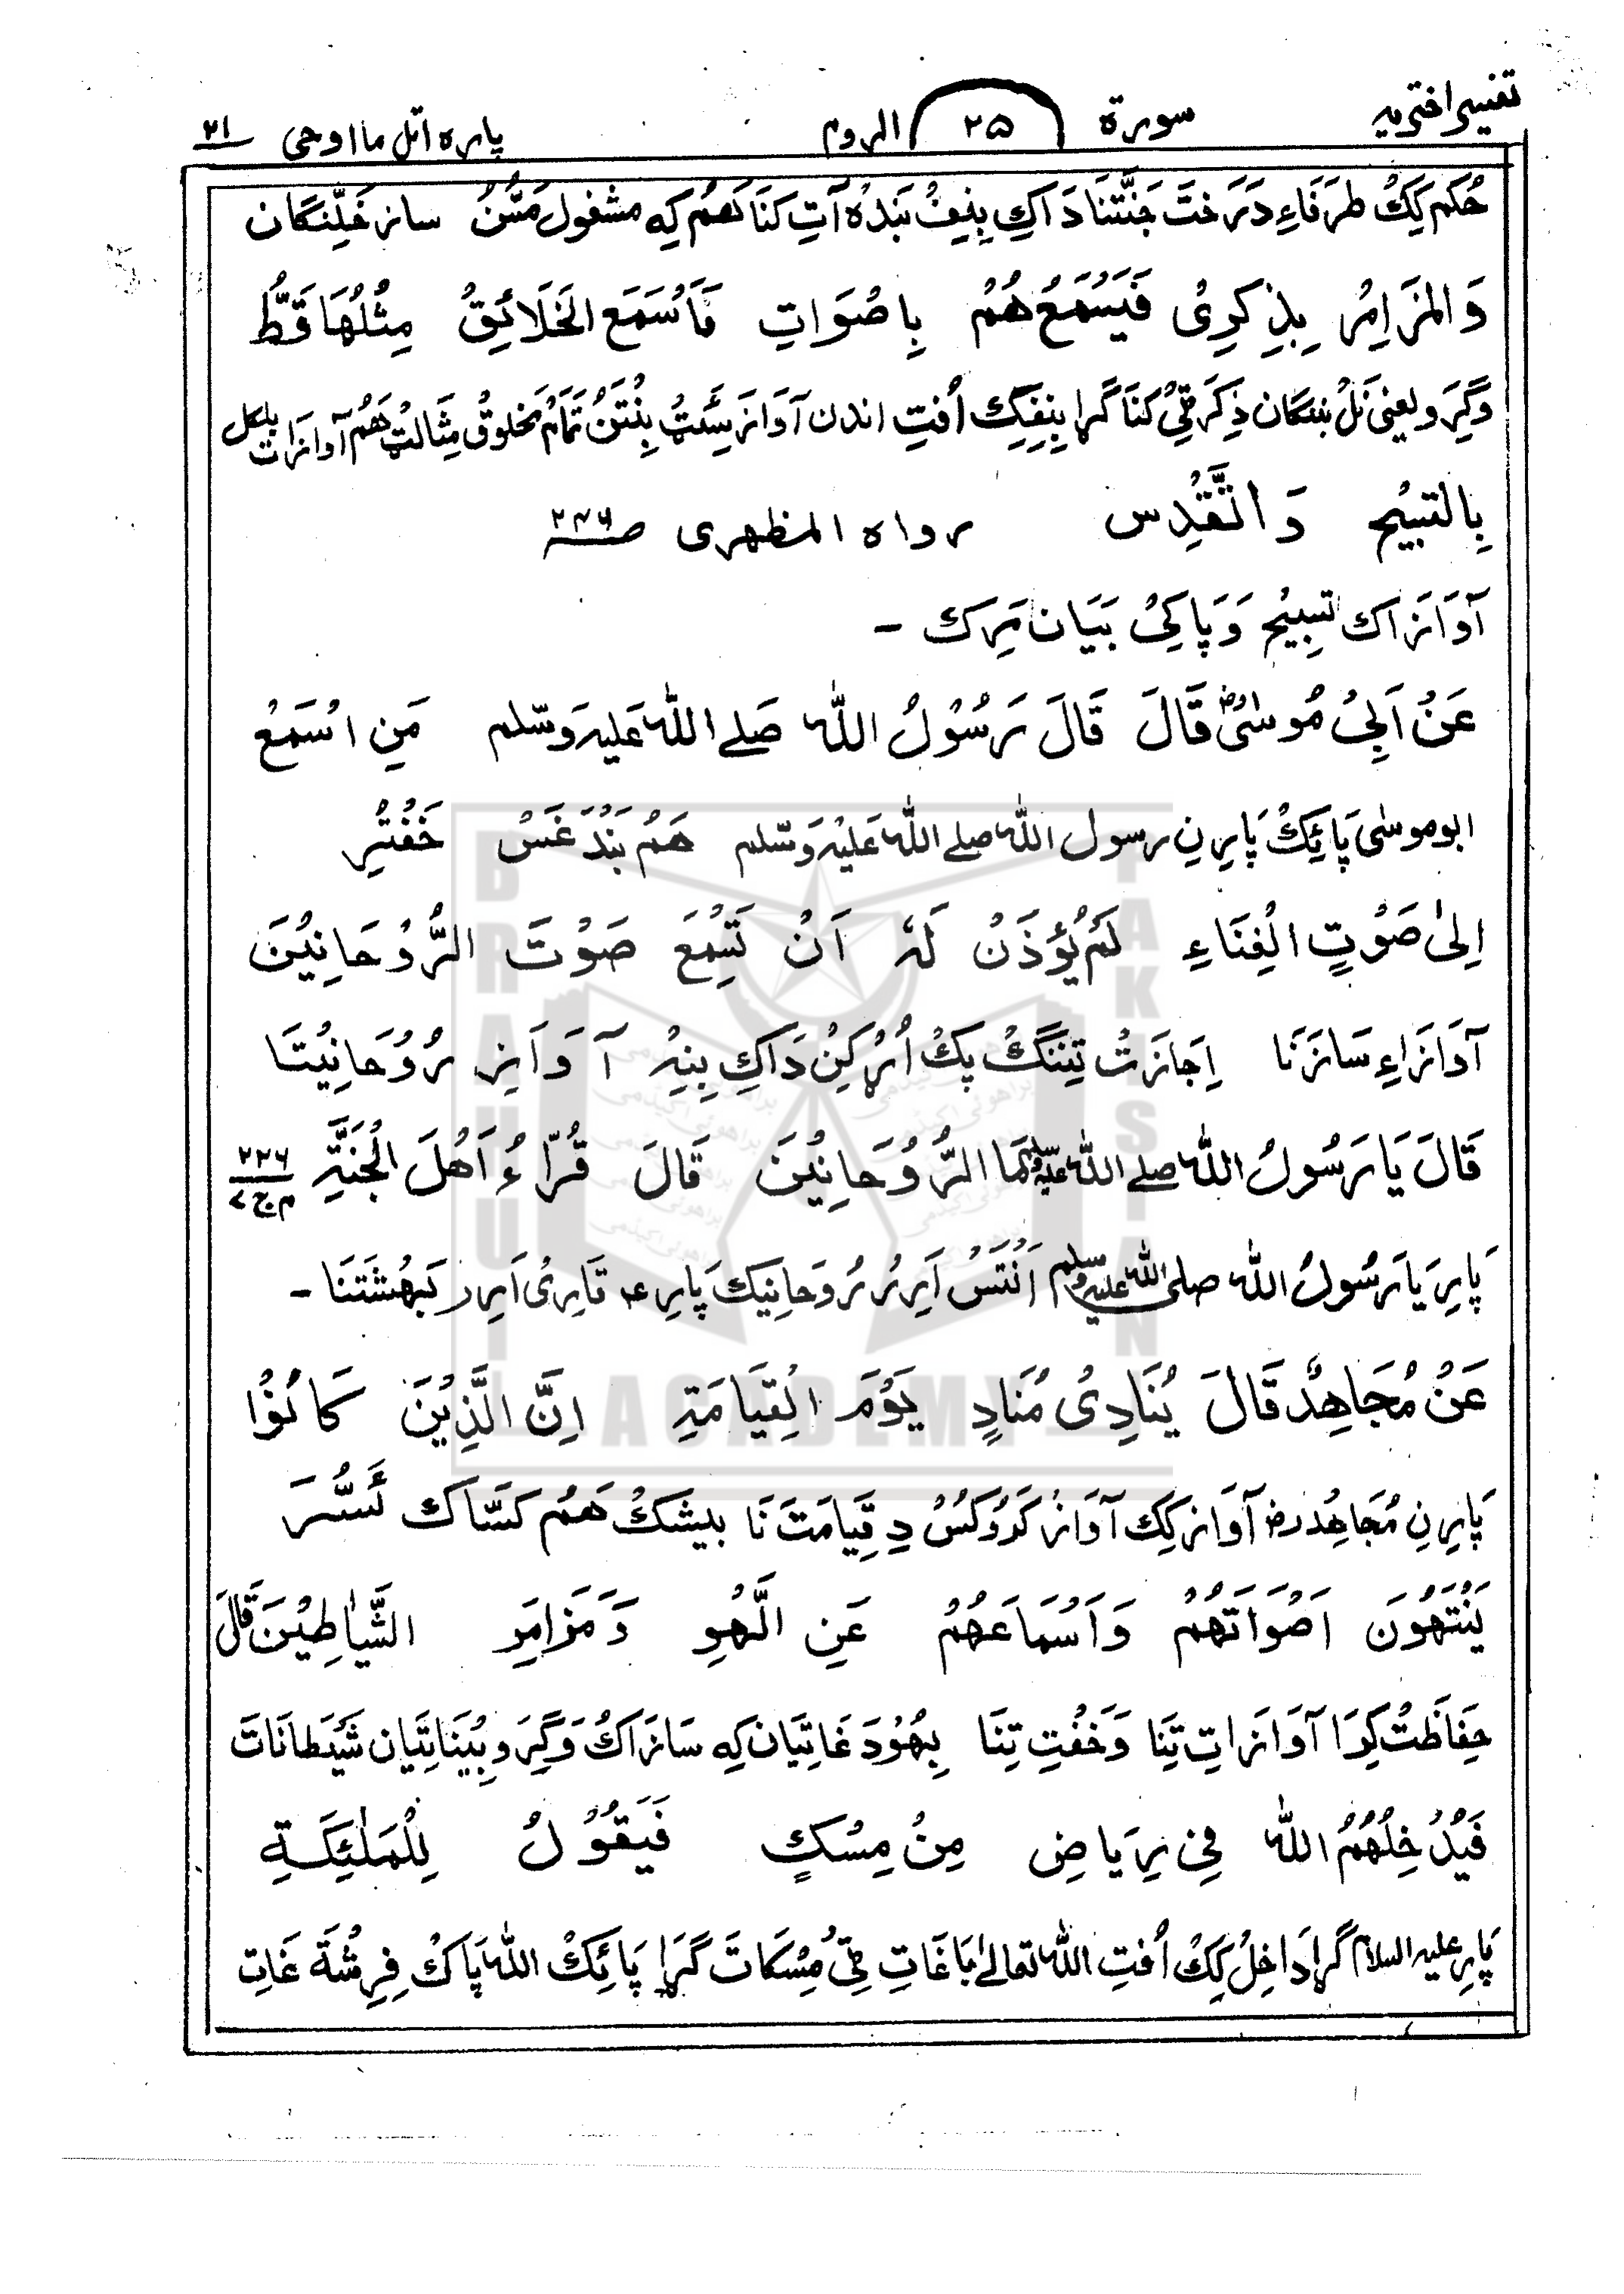 تفسیر اختریه سورة ٢٥ الروم پاره اتل ما اوحی ٢١
حُکم کِکْ طرفَاءِ دَرَختَ جَنَّتنَا دَاکِ بِنِفْ بَندہ آتِ کنَا ہَمْ کِہ مشغول مَسُّنْ ساز خَلِّنگان
وَالمَزَامِرُ بِذِکرِیْ فَیُسْمَعُ ھُمْ بِاصْوَاتٍ مَاَسْمَعَ الخَلَائِقُ مِثْلُھَا قَطُّ
وَگِرَ و یعنی نَلْ بننگان ذِکرَ ٹِیْ کنَا گُڑا بِنِفِکِ اُفتِ اندن آوَاز سِئَٹْ بِنْتَنُ تَمَامْ مخلوقْ مِثَالَٹْ ہَمْ آوازات بلکل
بِالتسبِیْحِ وَالتَّقْدِس رواہ المظهری صـ٢٢٦
آوَازاک تسبِیْح وَ پَاکِیْ بَیَان کِرَک ۔
عَنْ اَبِیْ مُوسٰیؓ قَالَ قَالَ رَسُوْلُ اللّٰہ صَلے اللّٰہ عَلیہ وَسّلم مَنِ اسْمَعْ
ابو موسٰی پَائِکْ پَارِنِ رسول اللّٰہ صلے اللّٰہ عَلَیْہ وَسّلم ہَمْ بَنْدَغَسْ خَفْتُرِ
اِلیٰ صَوْتِ الْغِنَاءِ لَمْ یُؤذَنْ لَہٗ اَنْ تَسْمَعَ صَوْتَ الرُّوْحَانِیْنَ
آوَازَاءِ سَازَنَا اِجَازَتْ تِنَنگْ پکْ اُڑکِنْ دَاکِ بِنِہْ آوَازِ رُوْحَانِیْتَا
قَالَ یَا رَسُولُ اللّٰہ صلے اللّٰہ علیہ وسلم مَا الرُّوْحَانِیْنَ قَالَ قُرّاءُ اَھْلَ الْجَنَّۃِ ٢٢٦ م ج ٧
پَارِ یَا رَسُولُ اللّٰہ صلی اللّٰہ علیہ وسلم اَنْتَسْ اَرِرْ رُوحَانِیک پَارِ ؑ قَارِیْ اَرِر بَہِشْتَنَا ۔
عَنْ مُجَاھِدٌ قَالَ یُنَادِیْ مُنَادٍ یَوْمَ الْقِیَامَۃِ اِنَّ الَّذِیْنَ کَانُوْا
پَارِنِ مُجَاھِدْ رض آوَاز کِک آوَازْ کَرُوکَسْ دِ قِیَامَتَ نَا بیشکْ ہَمْ کسّاک لَسُّرَ
یَنْتَھُوْنَ اَصْوَاتَھُمْ وَاَسْمَاعَھُمْ عَنِ الَّھْوِ وَمَزَامَرِ الشَّیاٰطِیْنَ قَالَ
حِفَاظَتْ کِرَا آوَازاتِ تِنَا وَخَفْتِ تِنَا بِہْوُدَ غَاتِیَان کِہ سَازَاکْ وَگِرَ و بِیْنَاتِیَان شَیْطَانَاتَ
فَیُدْخِلُھُمُ اللّٰہ فِیْ رِیَاضِ مِنْ مِسْکٍ فَیَقُوْلُ لِلْمَلٰئِکَۃِ
پَارِ علیہ السلام گُڑا دَاخِلْ کِکْ اُفتِ اللّٰہ تعالےٰ بَاغَاتِ ٹِیْ مُسْکَاتَ گُڑا پَائِکْ اللّٰہ پَاکْ فِرِشْتَہ غَاتِ
BRAHUI ACADEMY PAKISTAN